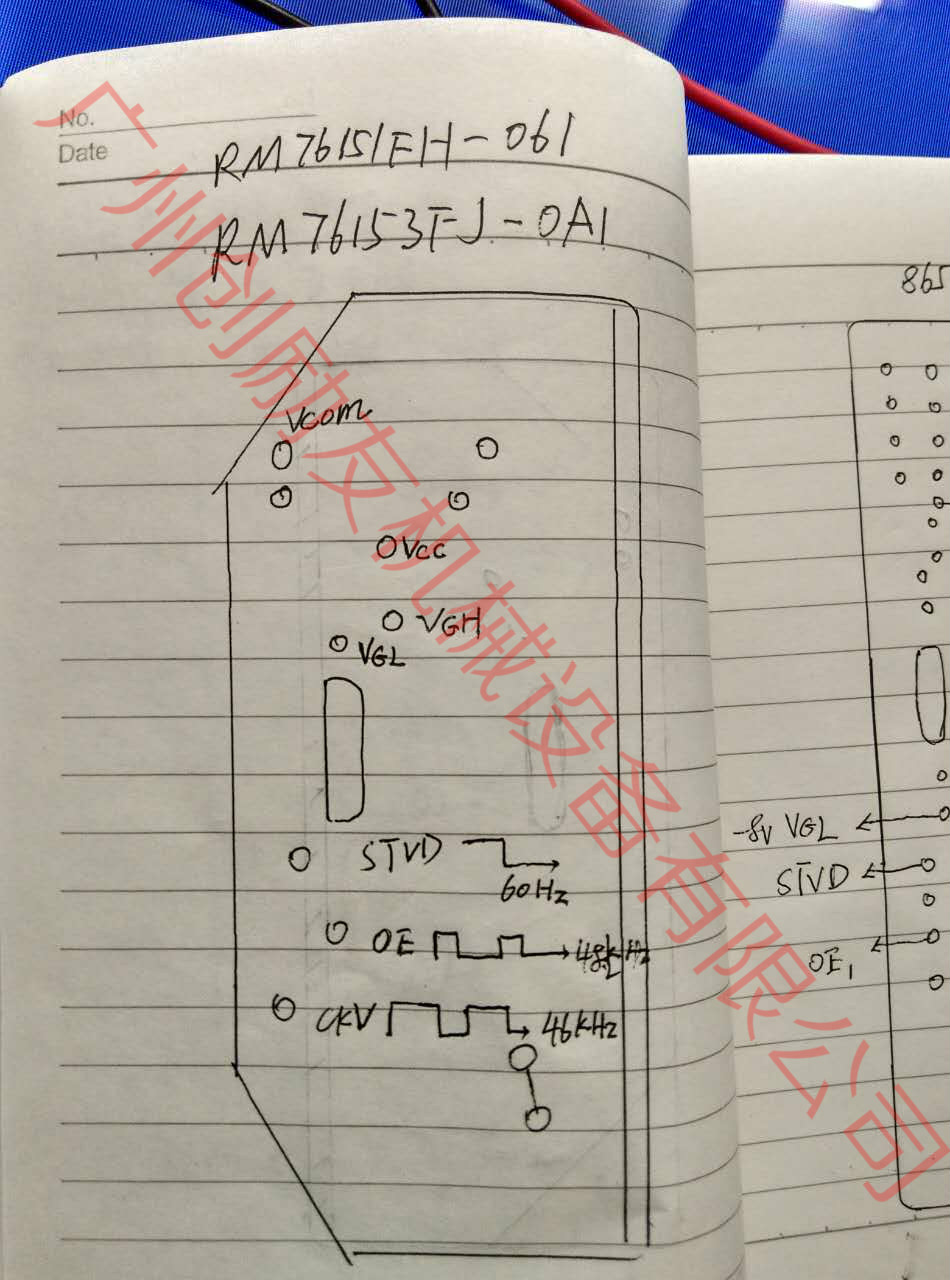 No.
Date
RM76151EH-061
RM76153FJ-0A1
VCOM
VCC
VGH
VGL
STVD
60Hz
OE 48kHz
CKV 46kHz
865
-8V VGL
STVD
OE1
广州创励友机械设备有限公司